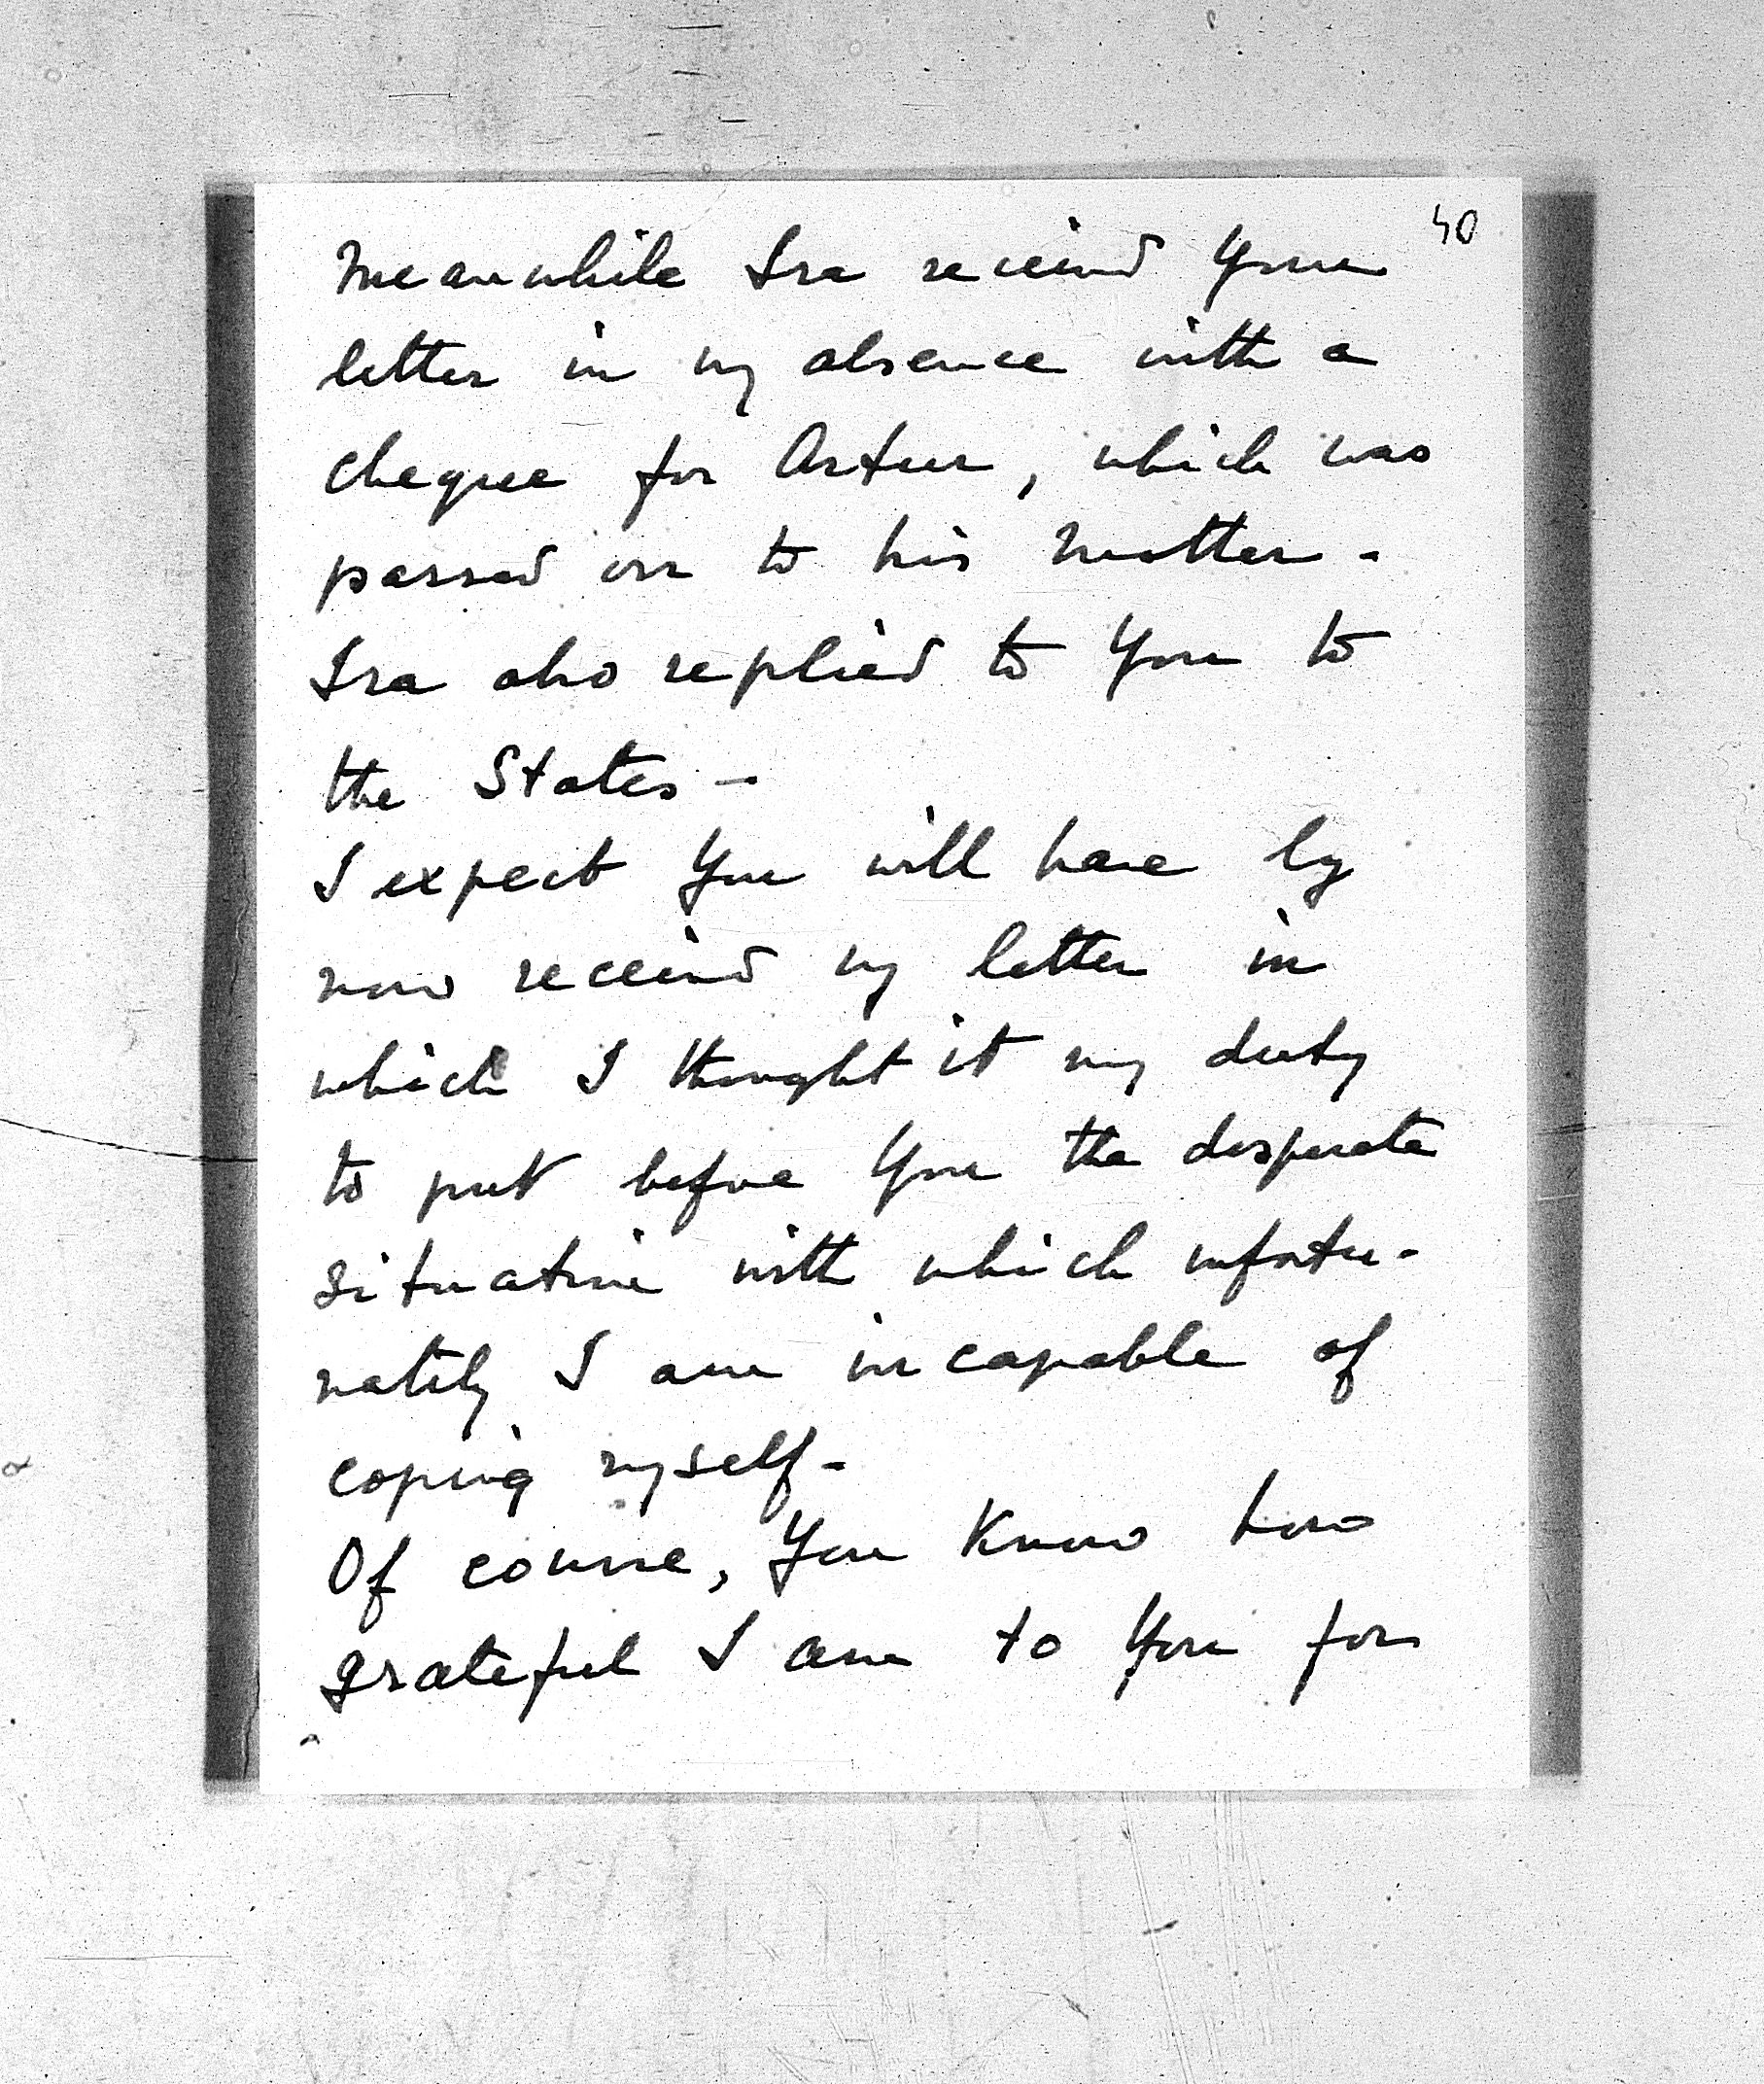 40
Meanwhile Ira received Your
letter in my absence with a
cheque for Artur, which was
passed on to his mother -
Ira also replied to You to
the States -
I expect You will have by
now received my letter in
which I thought it my duty
to put before You the desperate
situation with which unfortu-
nately I am incapable of
coping myself -
Of course, You know how
grateful I am to You for